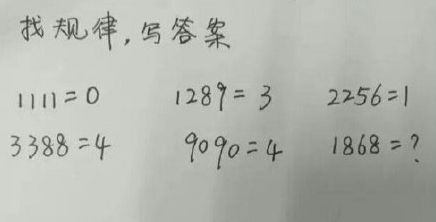 找规律,写答案
1111=0 1289=3 2256=1
3388=4 9090=4 1868=?